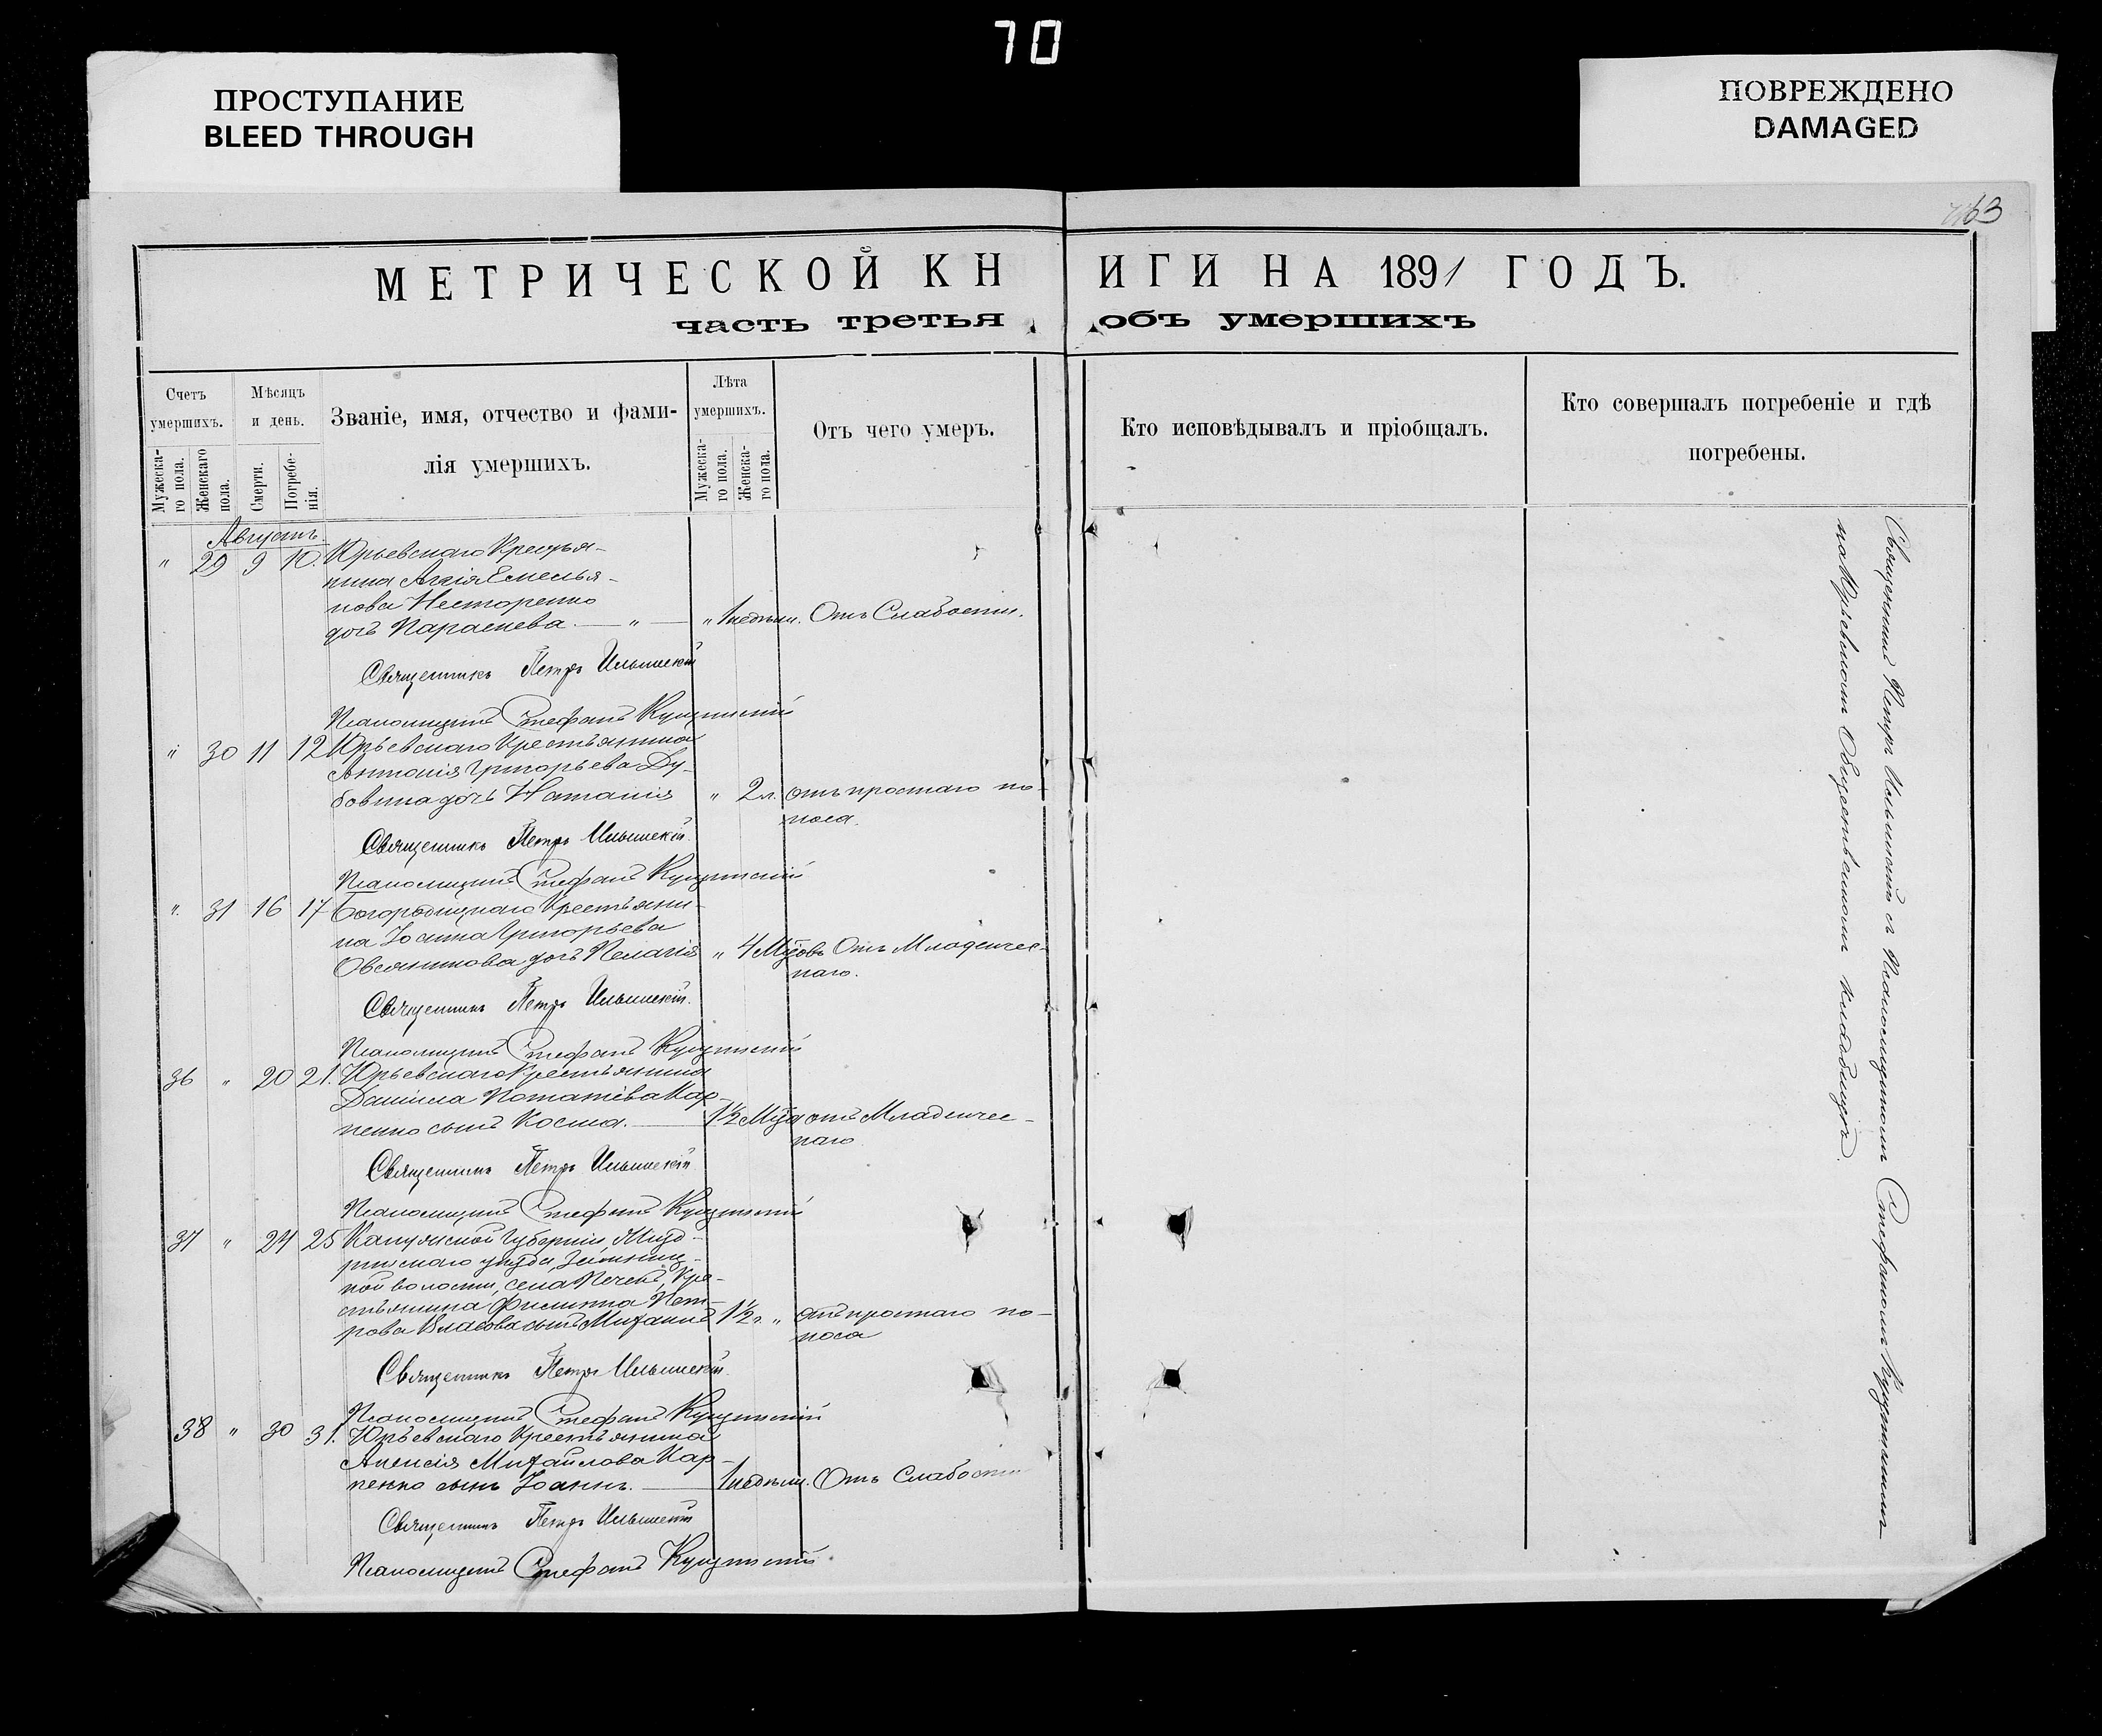 70
ПРОСТУПАНИЕ
BLEED THROUGH
ПОВРЕЖДЕНО
DAMAGED
63
МЕТРИЧЕСКОЙ КНИГИ НА 1891 ГОДЪ.
часть третья, объ умершихъ
Счетъ умершихъ.
Мѣсяцъ и день.
Званіе, имя, отчество и фами-
лія умершихъ.
Лѣта умершихъ.
Отъ чего умеръ.
Кто исповѣдывалъ и пріобщалъ.
Кто совершалъ погребеніе и гдѣ
погребены.
Мужеска-
го пола.
Женскаго
пола.
Смерти.
Погребе-
нія.
Мужеска-
го пола.
Женска-
го пола.
Августъ.
" 29 9 10. Юрьевскаго Крестья-
нина Емелья-
нова Несторенко
дочь Параскева. — " — " 1 недѣли. Отъ Слабости.
Священникъ Петръ Ильинскій
Псаломщикъ Стефанъ
" 30 11 12 Юрьевскаго Крестьянина
Антонія Григорьева Ду-
бовика дочь Наталія " 2 л. отъ простаго по-
носа.
Священникъ Петръ Ильинскій.
Псаломщикъ Стефанъ
". 31 16 17 Богородицкаго Крестьяни-
на Іоанна Григорьева
Овсянникова дочь Пелагія " 4 Мѣс. Отъ Младенчес-
каго.
Священникъ Петръ Ильинскій.
Псаломщикъ Стефанъ
36 " 20 21. Юрьевскаго Крестьянина
Даніила Кар-
пенко сынъ Косма. — 1½ Отъ Младенчес-
каго
Священникъ Петръ Ильинскій
Псаломщикъ Стефанъ
37 " 24 25 Калужской Губерніи, Жизд-
ринскаго уѣзда,
кой волости, села Кре-
стьянина Филиппа Пет-
рова Власова сынъ Михаилъ 1½ г. " отъ простаго по-
носа
Священникъ Петръ Ильинскій.
Псаломщикъ Стефанъ
38 " 30 31. Юрьевскаго Крестьянина
Алексія Михайлова Кар-
пенко сынъ Іоаннъ. — 1 недѣли. Отъ Слабости
Священникъ Петръ Ильинскій
Псаломщикъ Стефанъ
Священникъ Петръ Ильинскій съ Псаломщикомъ Стефаномъ
на Юрьевскомъ Общественномъ кладбищѣ.